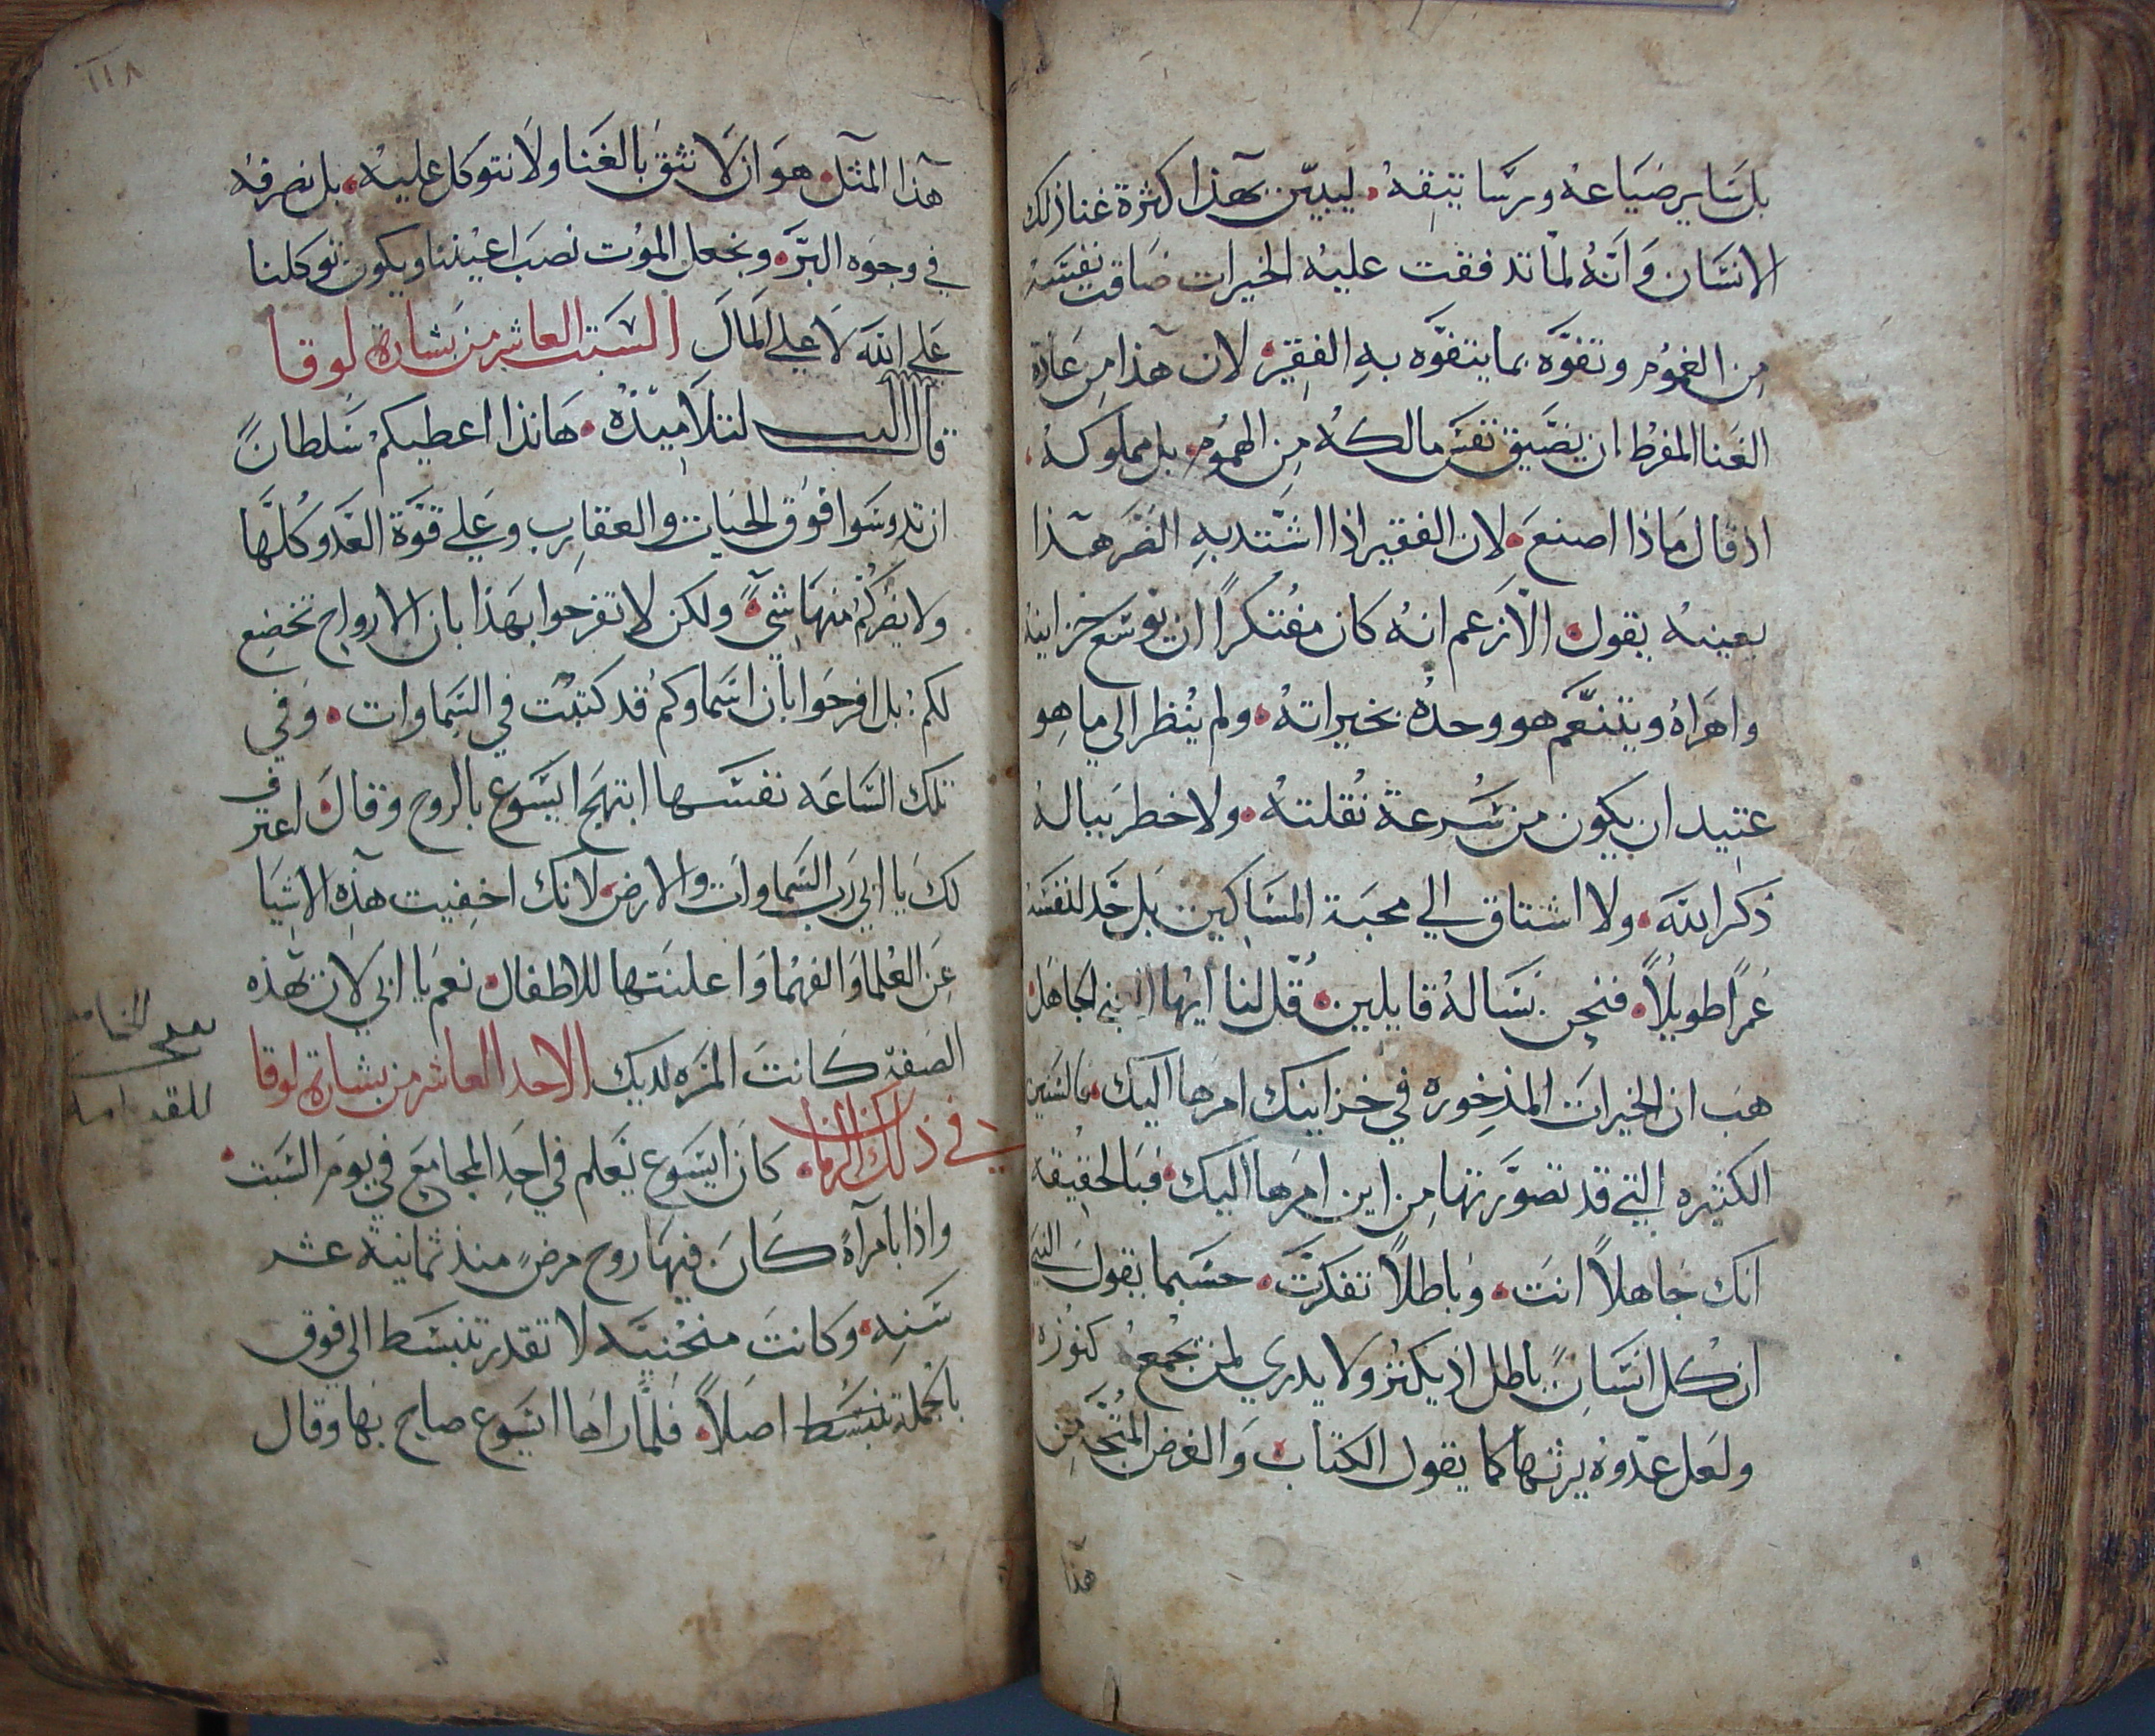 بل ساير ضياعه ورساتيقه ليبين بهذا كثرة غنا ذلك
الانسان وانه لما تدفقت عليه الخيرات ضاقت نفسه
من الغموم وتفوه بما يتفوه به الفقير لان هذا من عادة
الغنا المفرط ان يضيق نفس مالكه من الهموم بل مملوكه
اذ قال ماذا اصنع لان الفقير اذا اشتد به الضر هذا
بعينه يقول الا زعم انه كان مفتكراً ان يوسع خزاينه
واهراه ويتنعم هو وحده بخيراته ولم ينظر الى ما هو
عتيد ان يكون من سرعة نقلته ولا خطر بباله
ذكر الله ولا اشتاق الى محبة المساكين بل حد لنفسه
عمراً طويلاً فنحن نساله قايلين قل لنا ايها الغني الجاهل
هب ان الخيرات المذخوره في خزاينك امرها اليك فالسنين
الكثيره التي قد تصورتها من اين امرها اليك فبالحقيقه
انك جاهلاً انت وباطلاً تفكرت حسبما يقول النبي
ان كل انسان باطل اذ يكنز ولا يدري لمن يجمع كنوزه
ولعل عدوه يرثها كما يقول الكتاب والغرض المتجه من
هذا
١١٨
هذا المثل هو ان لا نثق بالغنا ولا نتوكل عليه بل نصرفه
في وجوه البر ونجعل الموت نصب اعيننا ويكون توكلنا
على الله لا على المال السبت العاشر من بشارة لوقا
قال الرب لتلاميذه هانذا اعطيكم سلطانً
ان تدوسوا فوق الحيات والعقارب وعلى قوة العدو كلها
ولا يضركم منها شي ولكن لا تفرحوا بهذا بان الارواح تخضع
لكم بل افرحوا بان اسماوكم قد كتبت في السماوات وفي
تلك الساعه نفسها ابتهج ايسوع بالروح وقال اعترف
لك يا ابي رب السماوات والارض لانك اخفيت هذه الاشيا
عن العلما والفهما واعلنتها للاطفال نعم يا ابي لان بهذه
الصفة كانت المسره لديك الاحد العاشر من بشارة لوقا
في ذلك الزمان كان ايسوع يعلم في احد المجامع في يوم السبت
واذا بامرآة كان فيها روح مرض منذ ثمانية عشر
سنه وكانت منحنيه لا تقدر تنبسط الى فوق
بالجملة تنبسط اصلاً فلما راها ايسوع صاح بها وقال